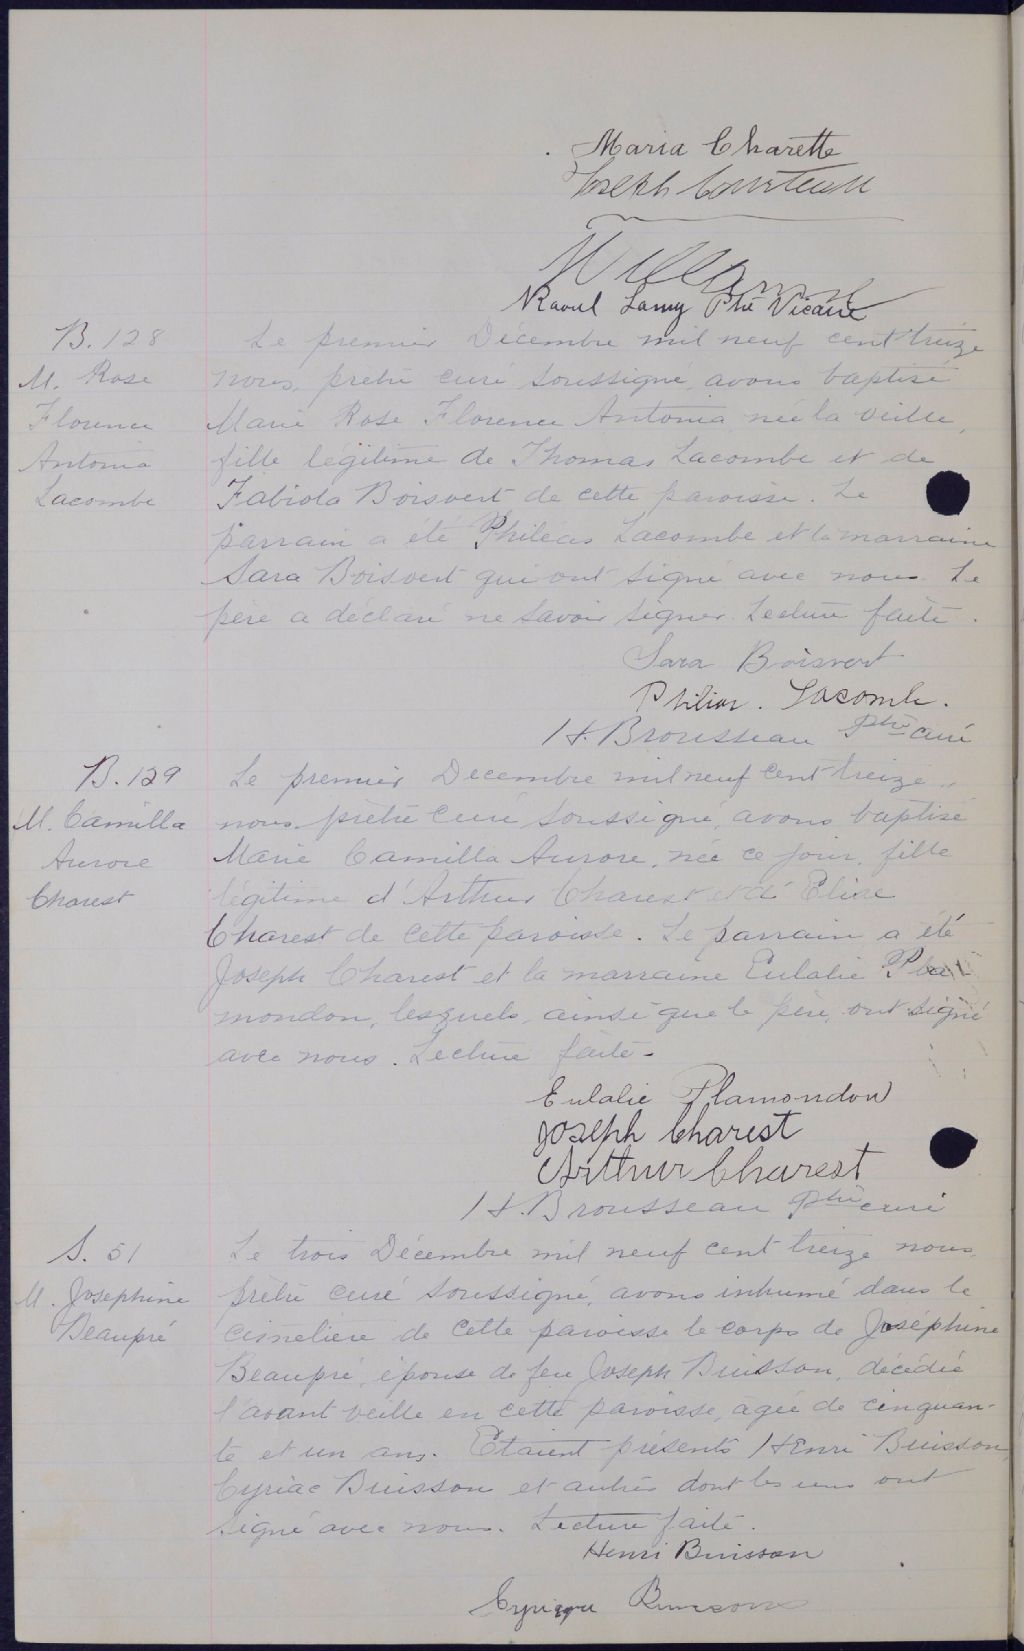 Maria Charette
Joseph Courteau
Raoul Lamy Ptre Vicaire
B. 128
M. Rose
Florence
Antonia
Lacombe
Le premier Décembre mil neuf cent treize
nous, prêtre curé soussigné, avons baptisé
Marie Rose Florence Antonia, née la veille,
fille légitime de Thomas Lacombe et de
Fabiola Boisvert de cette paroisse. Le
parrain a été Philéas Lacombe et la marraine
Sara Boisvert qui ont signé avec nous. Le
père a déclaré ne savoir signer. Lecture faite.
Sara Boisvert
Philias. Lacombe.
H. Brousseau Ptre curé
B. 129
M. Camilla
Aurore
Charest
Le premier Decembre mil neuf cent treize,
nous prêtre curé soussigné, avons baptisé
Marie Camilla Aurore, née ce jour, fille
légitime d'Arthur Charest et d'Eliza
Charest de cette paroisse. Le parrain a été
Joseph Charest et la marraine Eulalie Pla
mondon, lesquels, ainsi que le père, ont signé
avec nous. Lecture faite.
Eulalie Plamondon
Joseph Charest
Arthur Charest
H. Brousseau Ptre curé
S. 51
M. Josephine
Beaupré
Le trois Décembre mil neuf cent treize nous,
prêtre curé soussigné, avons inhumé dans le
cimetière de cette paroisse le corps de Joséphine
Beaupré, épouse de feu Joseph Buisson, décédée
l'avant veille en cette paroisse, agée de cinquan-
te et un ans. Etaient présents Henri Buisson,
Cyriac Buisson et autres dont les uns ont
signé avec nous. Lecture faite.
Henri Buisson
Buisson